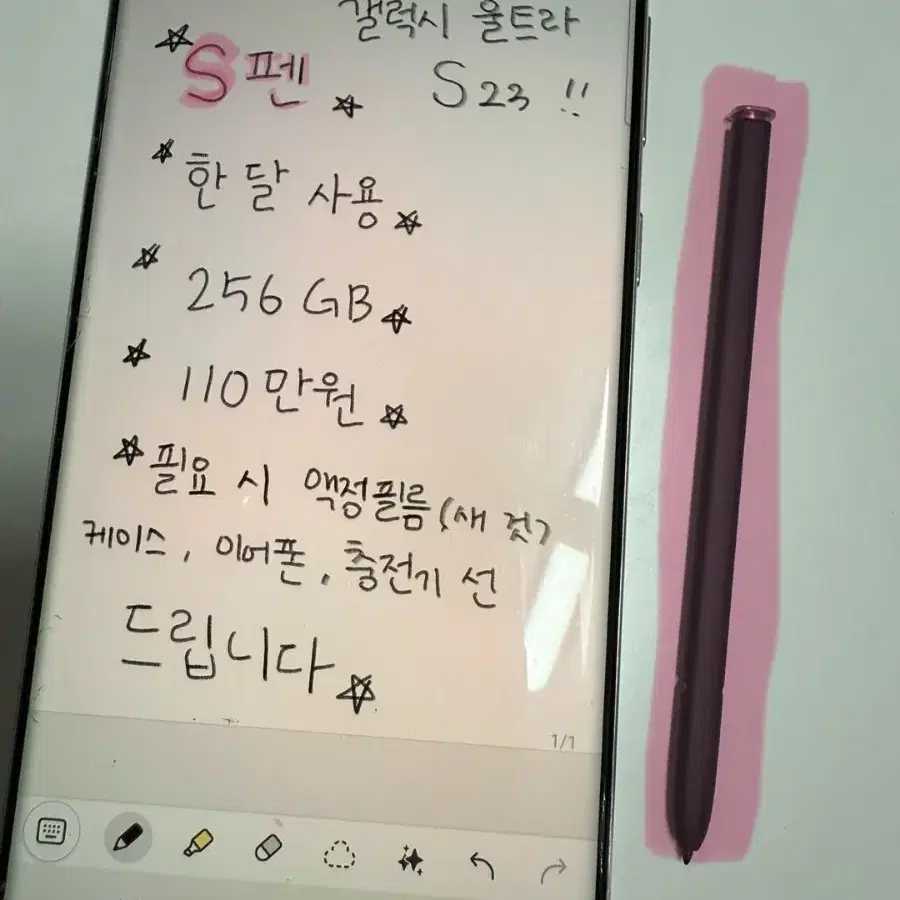 갤럭시 울트라
S펜 S23 !!
한 달 사용
256 GB
110만원
필요 시 액정필름 (새 것)
케이스, 이어폰, 충전기 선
드립니다
1/1